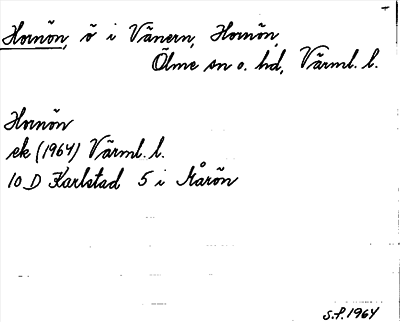 Hornön, ö i Vänern, Hornön,
Ölme sn o. hd, Värml. l.
Hornön
ek (1964) Värml. l.
10 D Karlstad 5 i Mårön
S.P. 1964